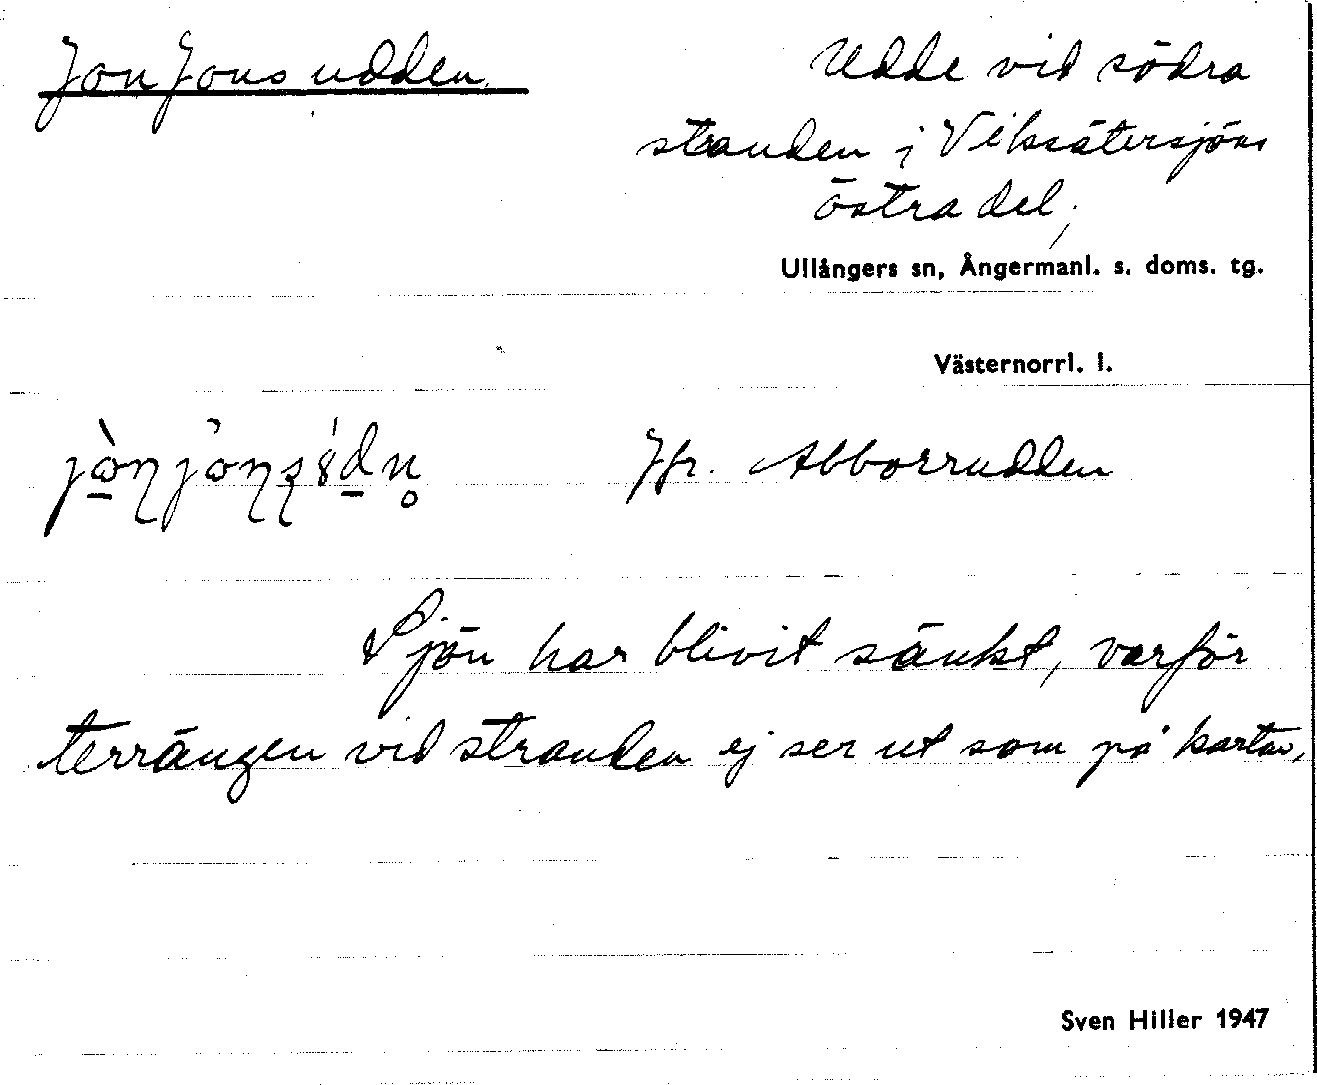 Jon Jonsudden.
Udde vid södra
stranden i Viksätersjöns
östra del,
Ullångers sn, Ångermanl. s. doms. tg.
Västernorrl. l.
Jfr. Abborrudden
Sjön har blivit sänkt, varför
terrängen vid stranden ej ser ut som på kartan.
Sven Hiller 1947